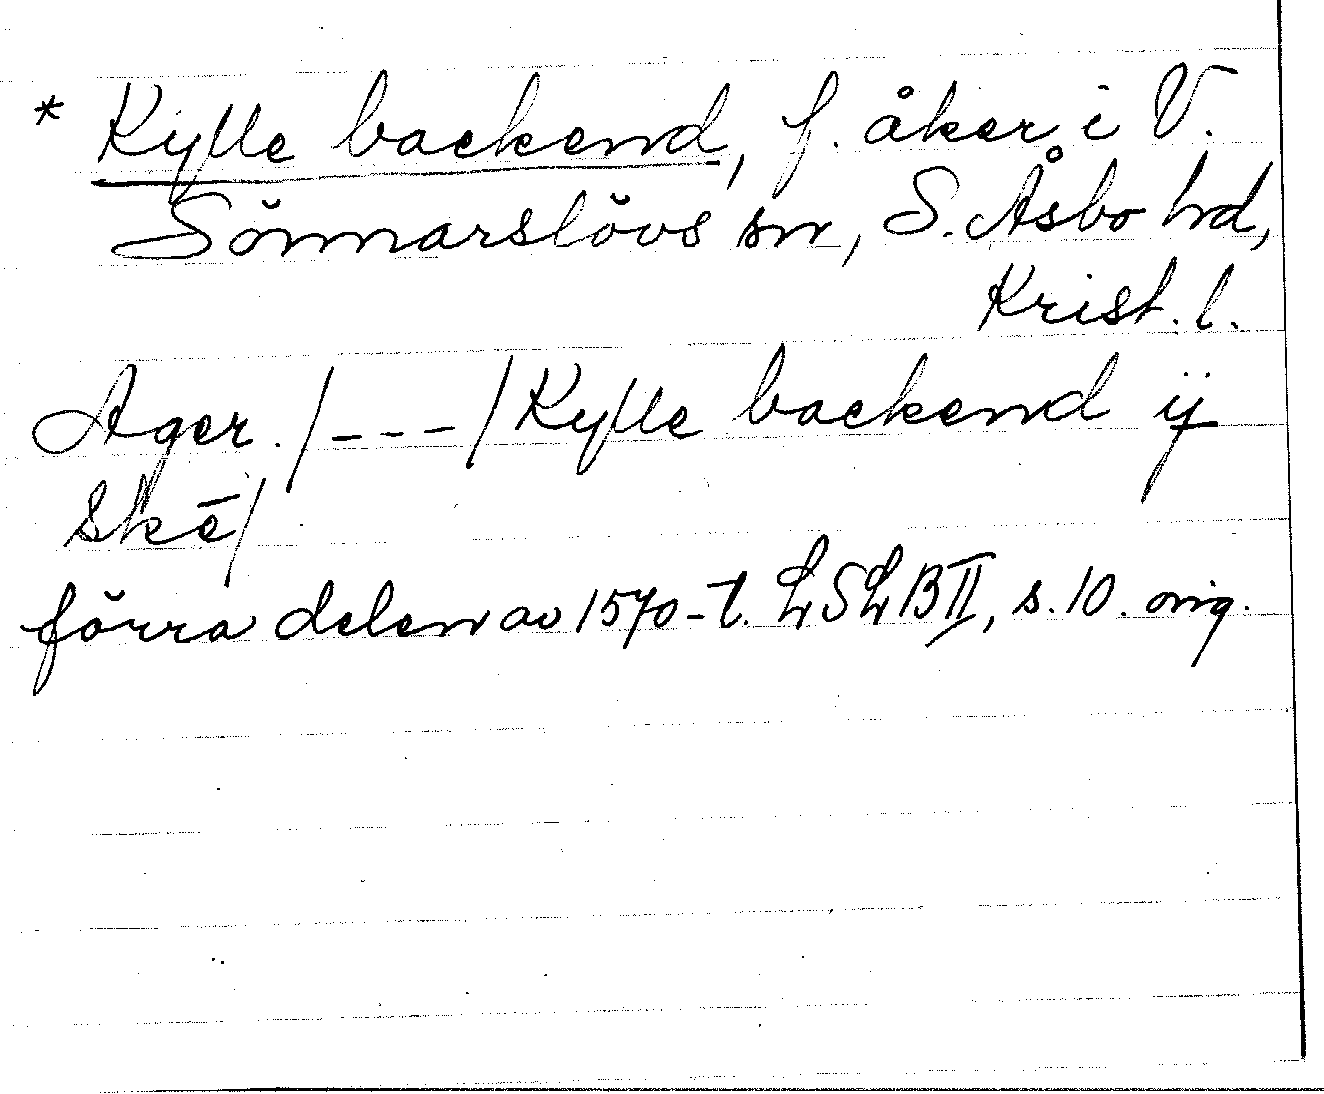 * Kylle backend, f. åker i V.
Sönnarslövs sn, S. Åsbo hd,
Krist. l.
Ager. /---/ Kylle backend ÿ
skē/
förra delen av 1570-t. LSLB II, s. 10. orig.